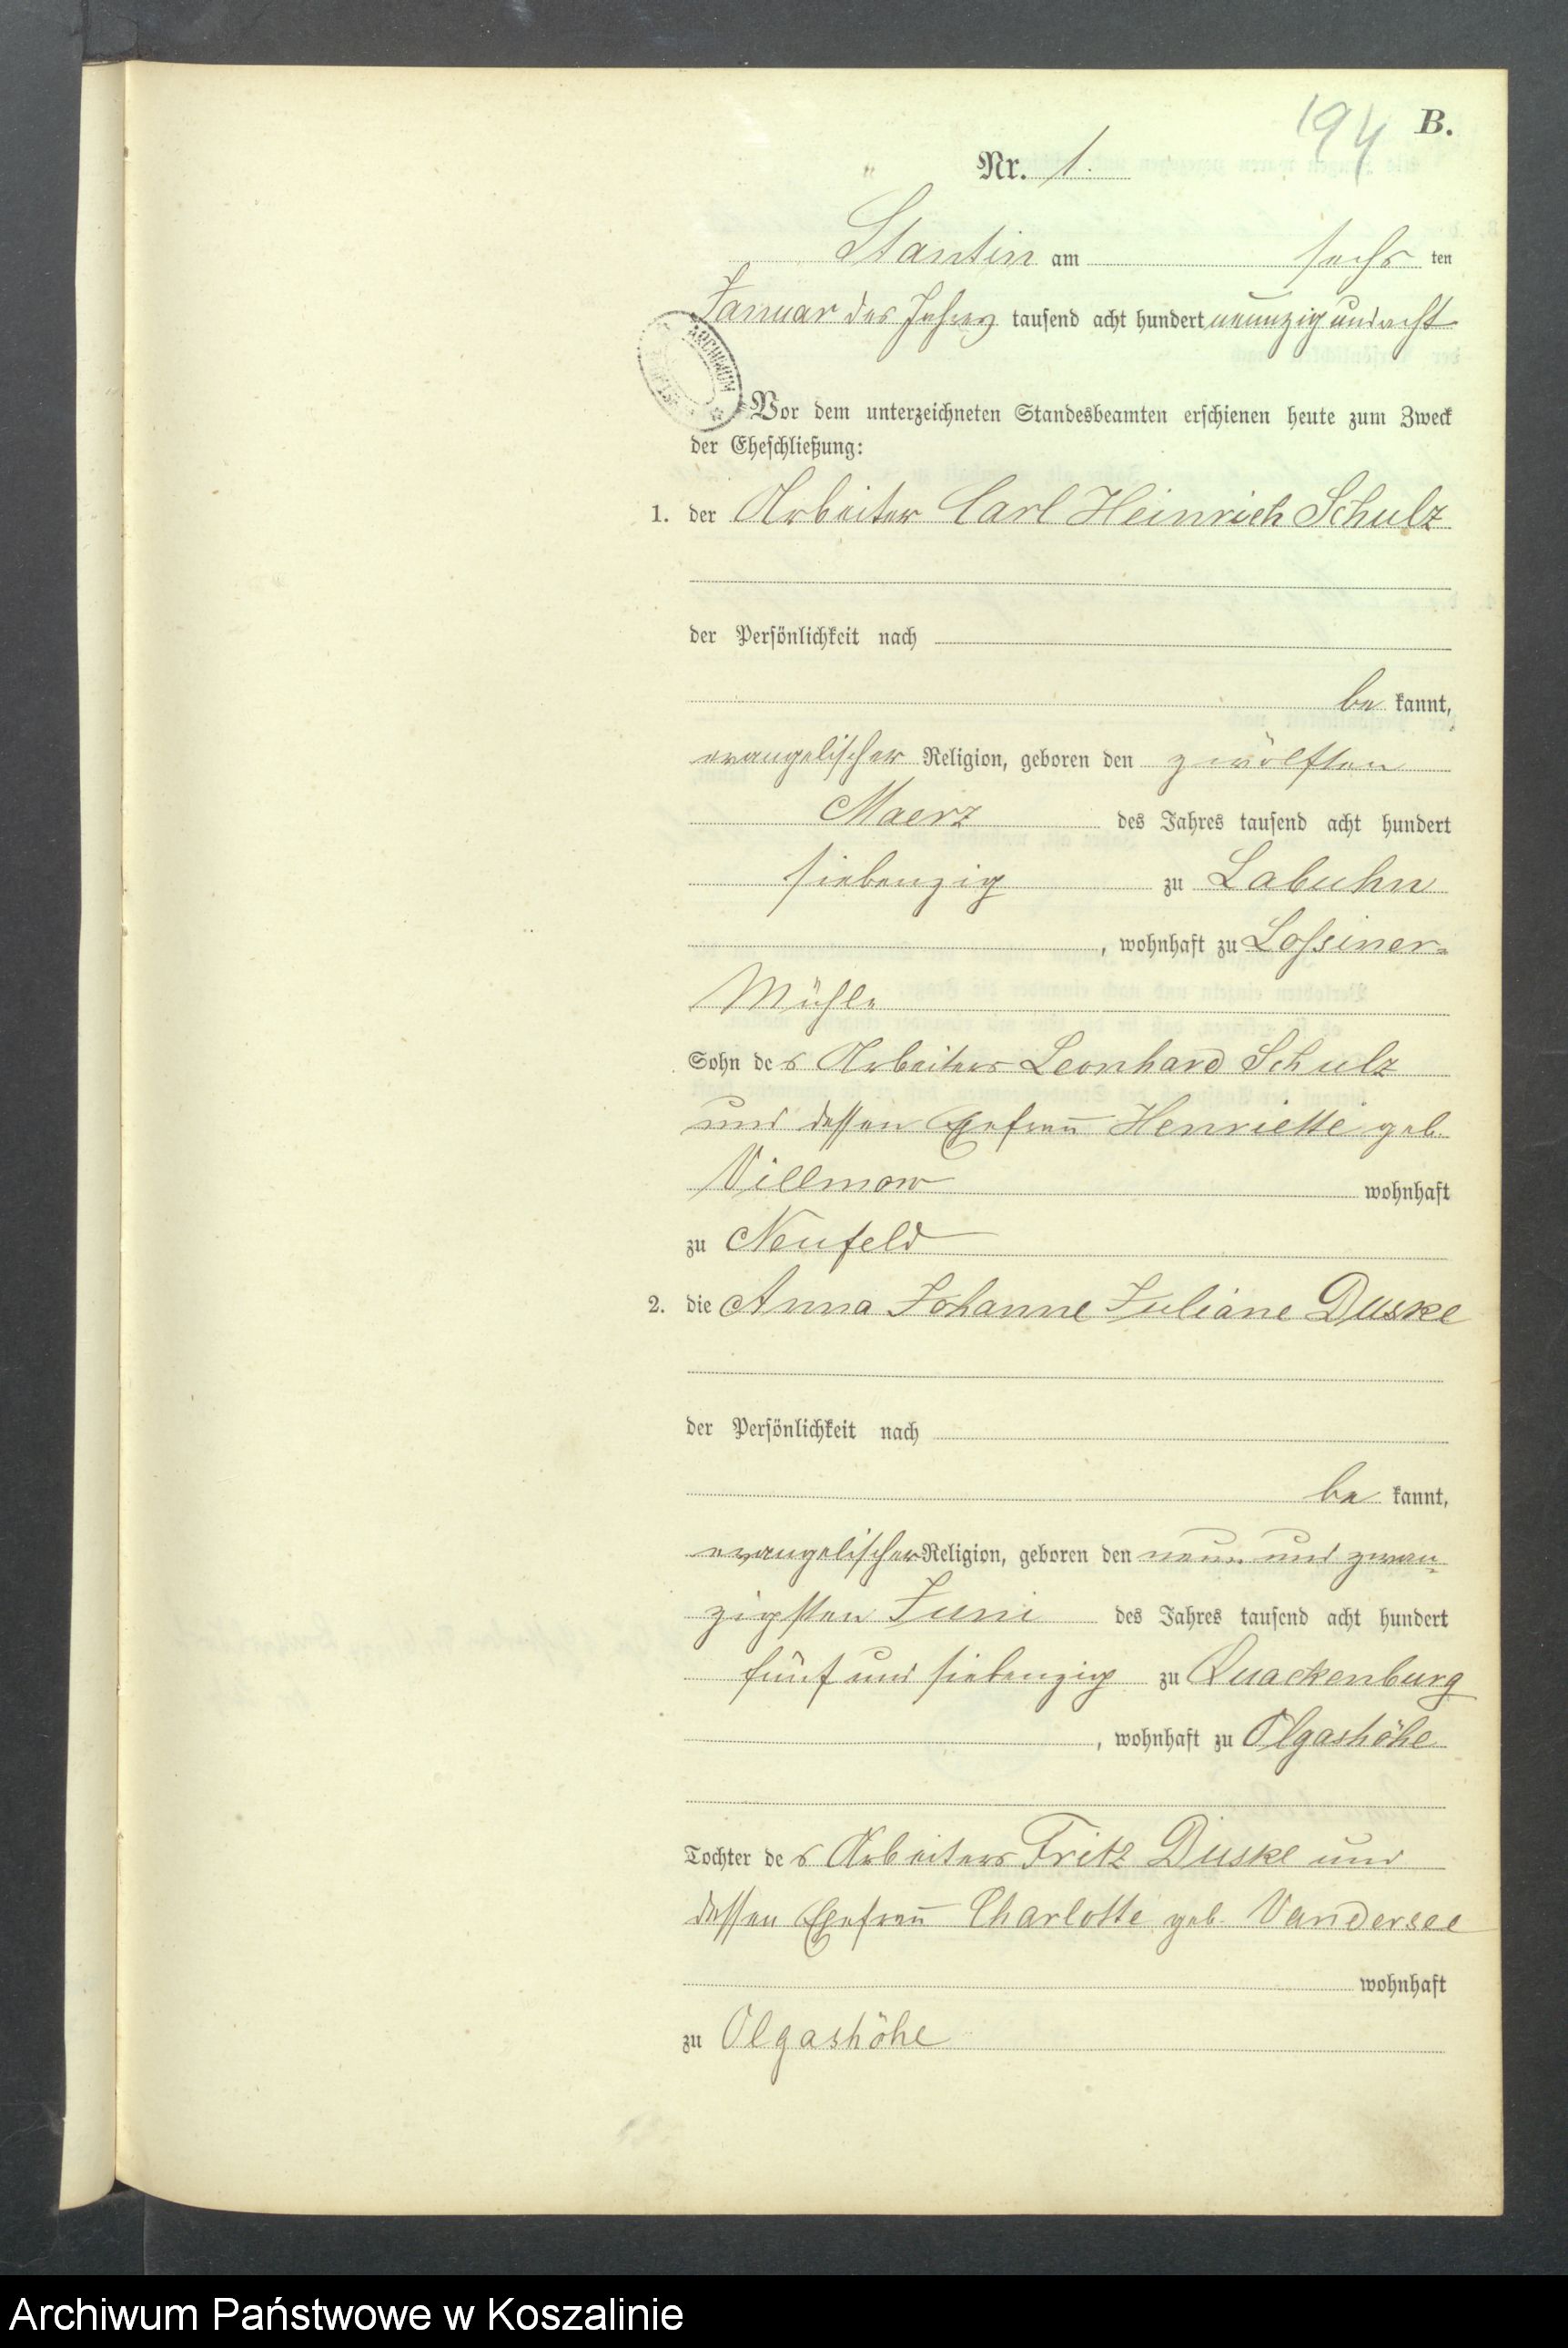 194 B.
Nr. 1.
Stantin am sechs ten
Januar des Jahres tausend acht hundert neunzig und acht
ARCHIWUM
Vor dem unterzeichneten Standesbeamten erschienen heute zum Zweck
der Eheschließung:
1. der Arbeiter Carl Heinrich Schulz
der Persönlichkeit nach
be kannt,
evangelischer Religion, geboren den zwölften
Maerz des Jahres tausend acht hundert
siebenzig zu Labuhn
, wohnhaft zu Lossiner-
Mühle
Sohn des Arbeiters Leonhard Schulz
und dessen Ehefrau Henriette geb.
Villmow wohnhaft
zu Neufeld
2. die Anna Johanne Juliane Duske
der Persönlichkeit nach
be kannt,
evangelischer Religion, geboren den neun und zwan-
zigsten Juni des Jahres tausend acht hundert
fünf und siebenzig zu Quackenburg
, wohnhaft zu Olgashöhe
Tochter des Arbeiters Fritz Duske und
dessen Ehefrau Charlotte geb. Vandersee
wohnhaft
zu Olgashöhe
Archiwum Państwowe w Koszalinie